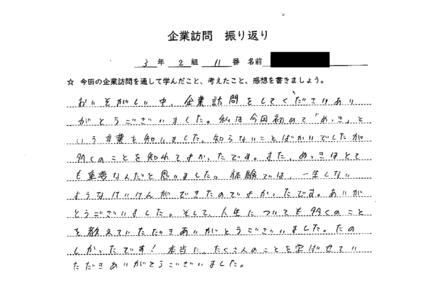 企業訪問 振り返り
3年 2組 11番 名前
☆ 今回の企業訪問を通して学んだこと、考えたこと、感想を書きましょう。
おいそがしい中、企業訪問をしてくださりあり
がとうございました。私は今回初めて「めっき」と
いう言葉を知りました。知らないことばかりでしたが
多くのことを知れてよかったです。また、めっきはとて
も重要なんだと思いました。体験では、一生しない
ようなけいけんができたのでよかったです。ありが
とうございました。そして、人生についても多くのこと
を教えていただきありがとうございました。たの
しかったです！本当に、たくさんのことを学ばせてい
ただきありがとうございました。